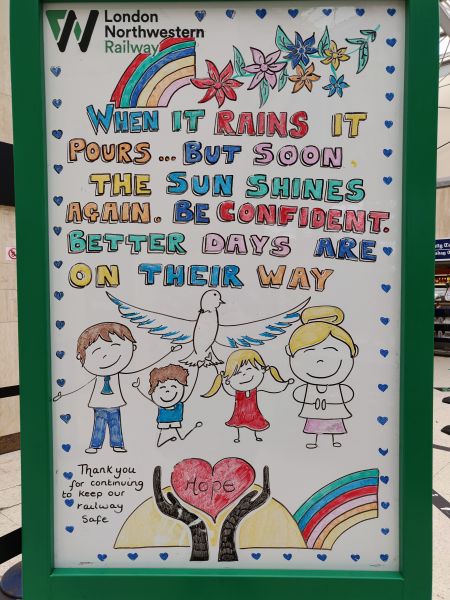 London
Northwestern
Railway
WHEN IT RAINS IT
POURS... BUT SOON,
THE SUN SHINES
AGAIN. BE CONFIDENT.
BETTER DAYS ARE
ON THEIR WAY
Thank you
for continuing
to keep our
railway
Safe
Hope